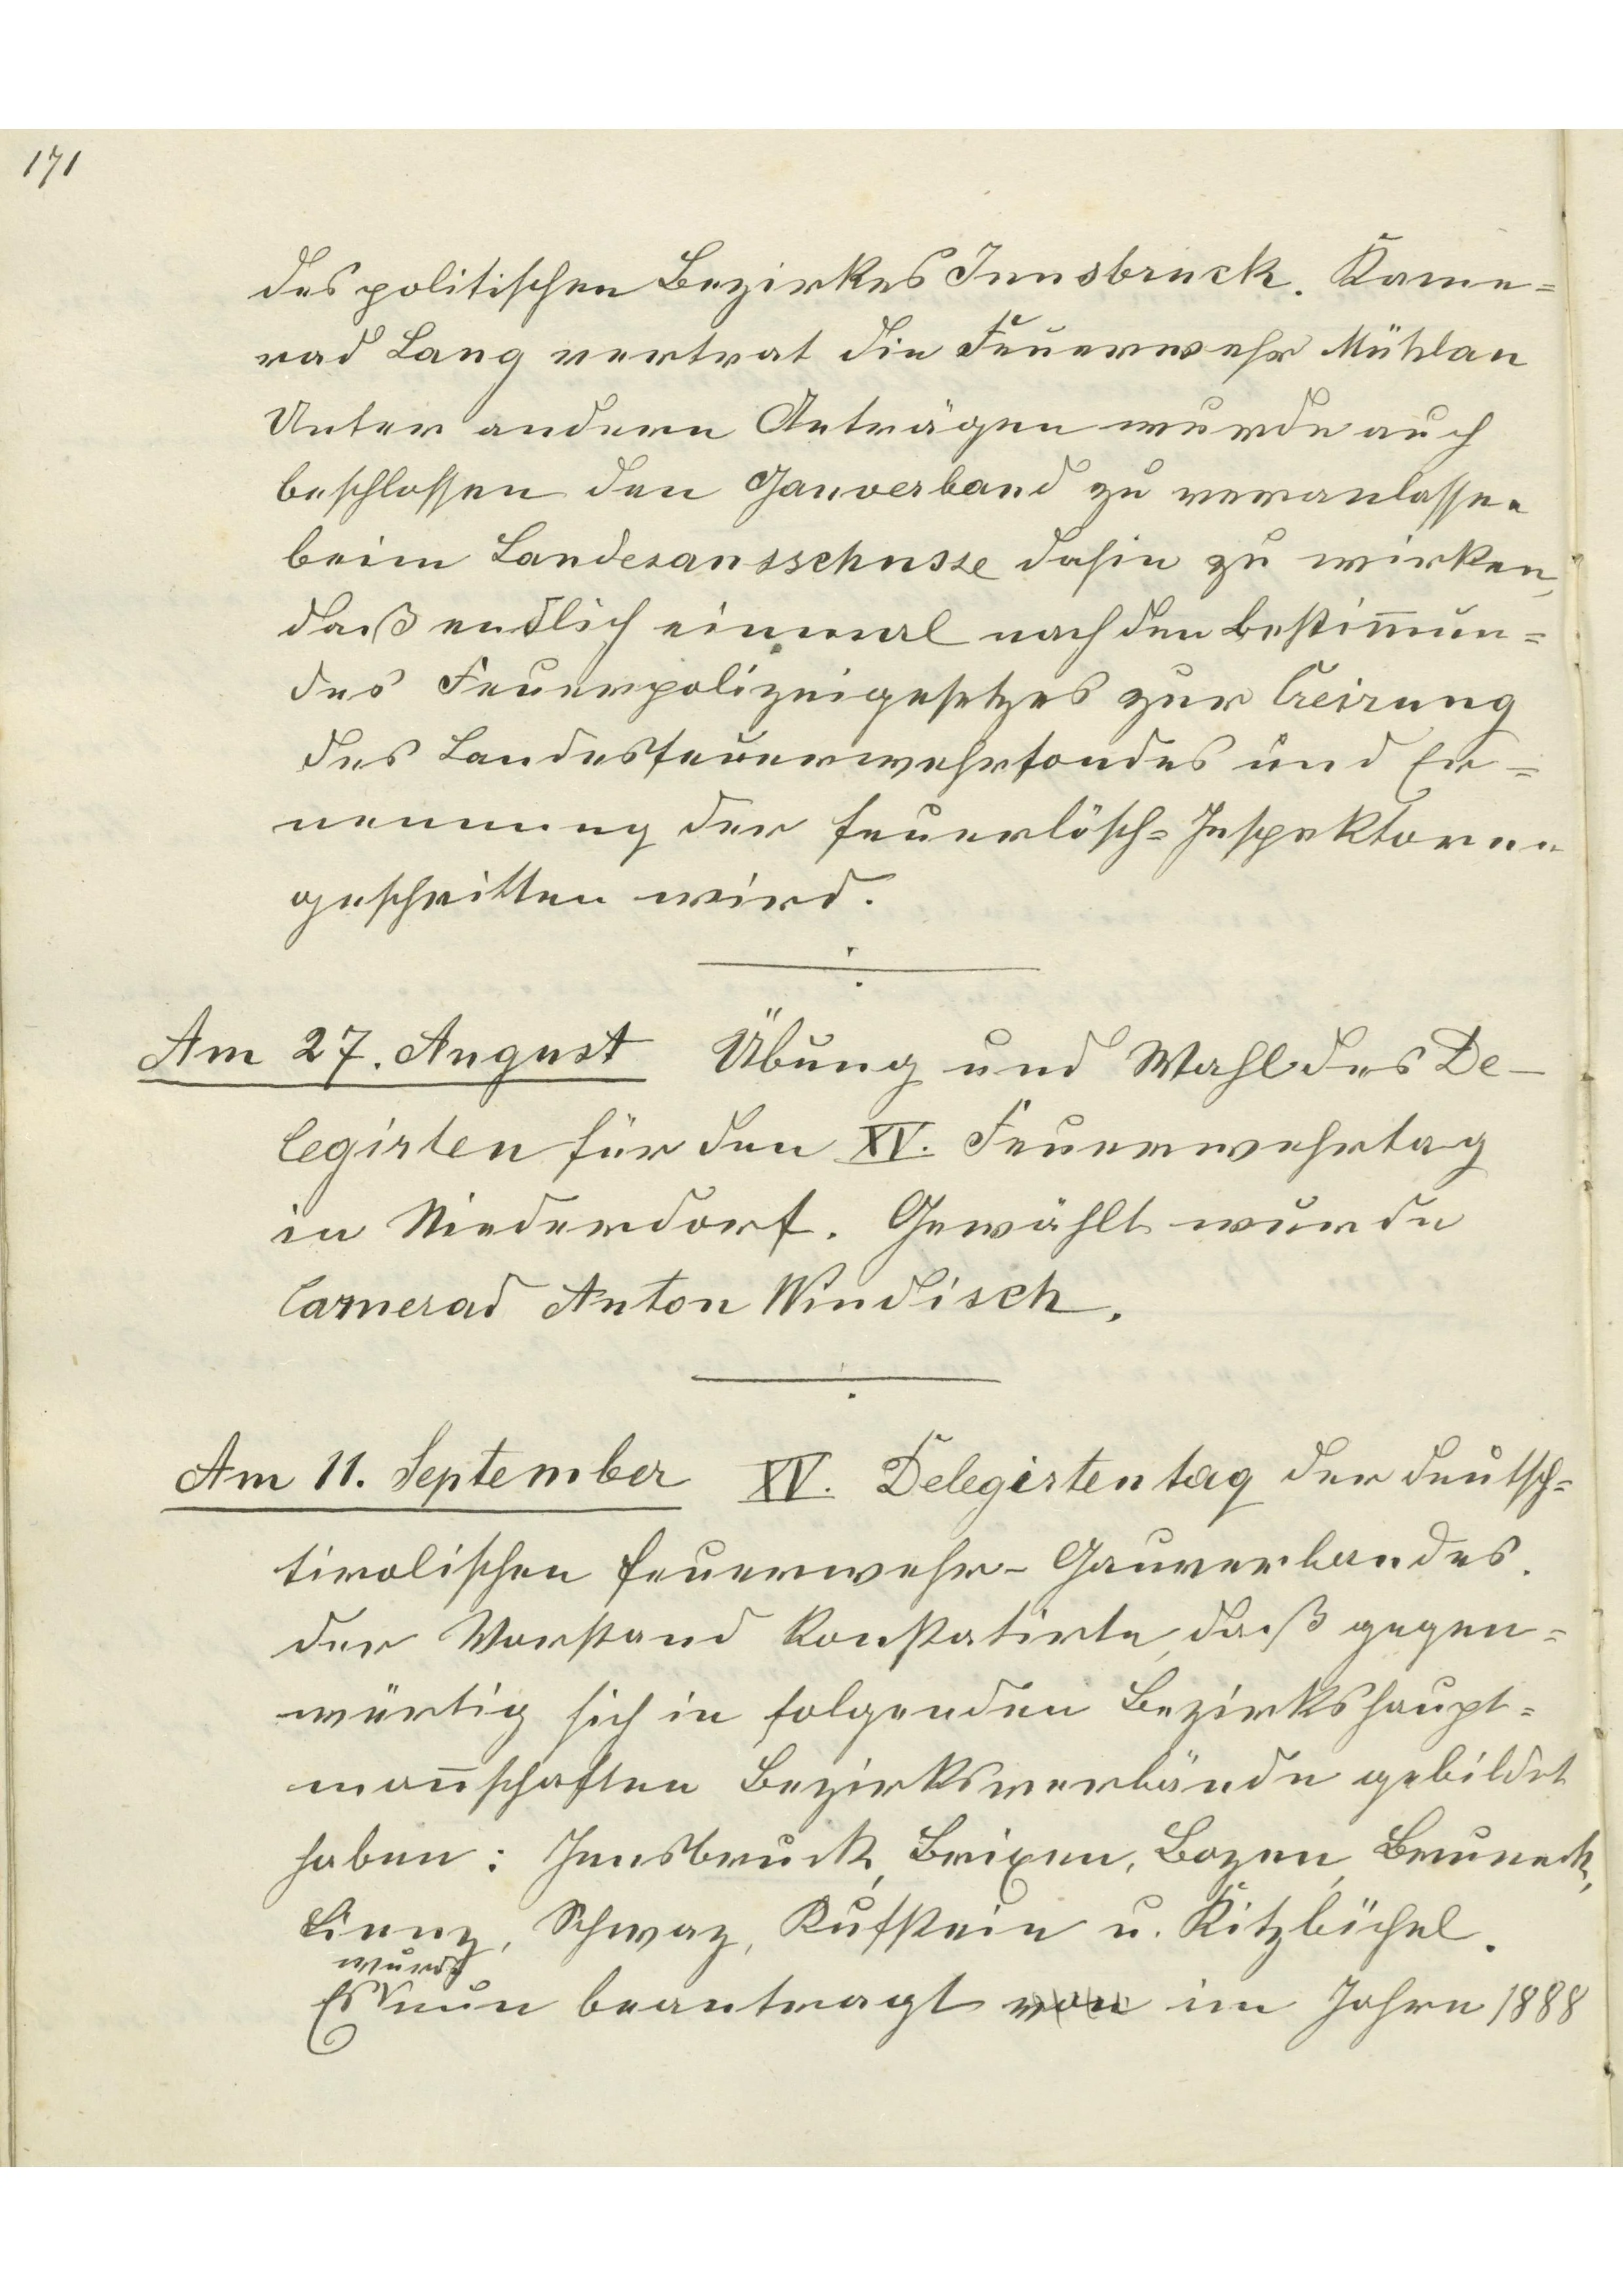 171
des politischen Bezirkes Innsbruck. Kame=
rad Lang vertrat die Feuerwehr Mühlau
Unter andern Anträgen wurde auch
beschlossen den Gauverband zu veranlassen
beim Landesausschusse dahin zu wirken,
daß endlich einmal nach den Bestim̄un=
des Feuerpolizeigesetzes zur Creirung
des Landesfeuerwehrfondes und Er=
nennung der Feuerlösch=Inspektoren
geschritten wird.
Am 27. August Übung und Wahl des De-
legirten für den XV. Feuerwehrtag
in Niederdorf. Gewählt wurde
Camerad Anton Windisch.
Am 11. September XV. Delegirtentag der deutsch=
tirolischen Feuerwehr-Gauverbandes.
der Vorstand konstatirte, daß gegen=
wärtig sich in folgenden Bezirkshaupt=
man̄schaften Bezirksverbände gebildet
haben: Innsbruck, Brixen, Bozen, Bruneck,
Lienz, Schwaz, Kufstein u. Kitzbüchel.
wurde
Es nun beantragt von im Jahre 1888